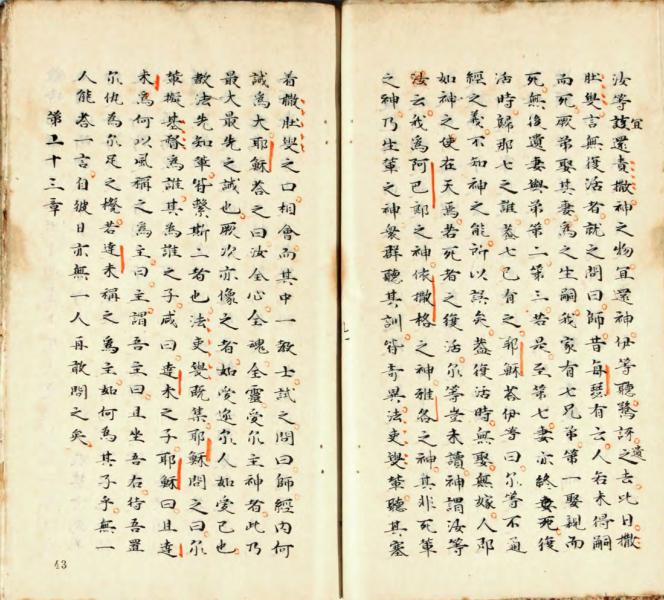 汝等該還責撒神之物宜還神伊等聽驚訝之去此日撒
宜
遺
肚叟言無復活者就之問曰師昔每瑟有云人若未得嗣
而死厥弟娶其妻為之生嗣我家有七兄弟第一娶親而
死無後遺妻與弟第二第三若是至第七妻亦終妻死後
活時歸那七之誰蓋七已有之耶穌荅伊等曰尔等不通
經之義不知神之能所以誤矣蓋復活時無娶無嫁人即
如神之使在天焉若死者之復活尔等豈未讀神謂汝等
汝云我為阿巴郎之神依撒格之神雅各之神其非死輩
之神乃生輩之神衆群聽其訓皆奇異法吏叟輩聽其塞
着撒肚叟之口相會而其中一教士試之問曰師經內何
誡為大耶穌荅之曰汝全心全魂全靈愛尔主神者此乃
最大最先之誡也厥次亦像之者如愛邇尔人如愛己也
教法先知輩皆繫斯二者也法吏幾既集耶穌問之曰尔
輩擬基督為誰其為誰之子咸曰達未之子耶穌曰且達
未為何以風稱之為主曰主謂吾主曰且坐吾右待吾置
尔仇為尔足之櫈若達未稱之為主如何為其子乎無一
人能荅一言自彼日亦無一人再敢問之矣
第二十三章
43